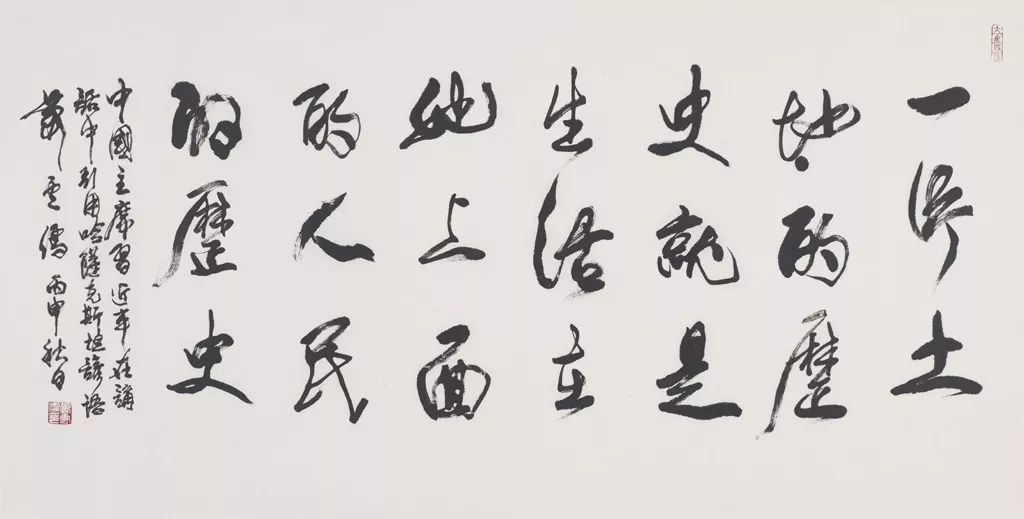 一片土
地的歷
史就是
生活在
她上面
的人民
的歷史
中國主席習近平在講
話中引用哈薩克斯坦諺語
蕭云儒 丙申秋日